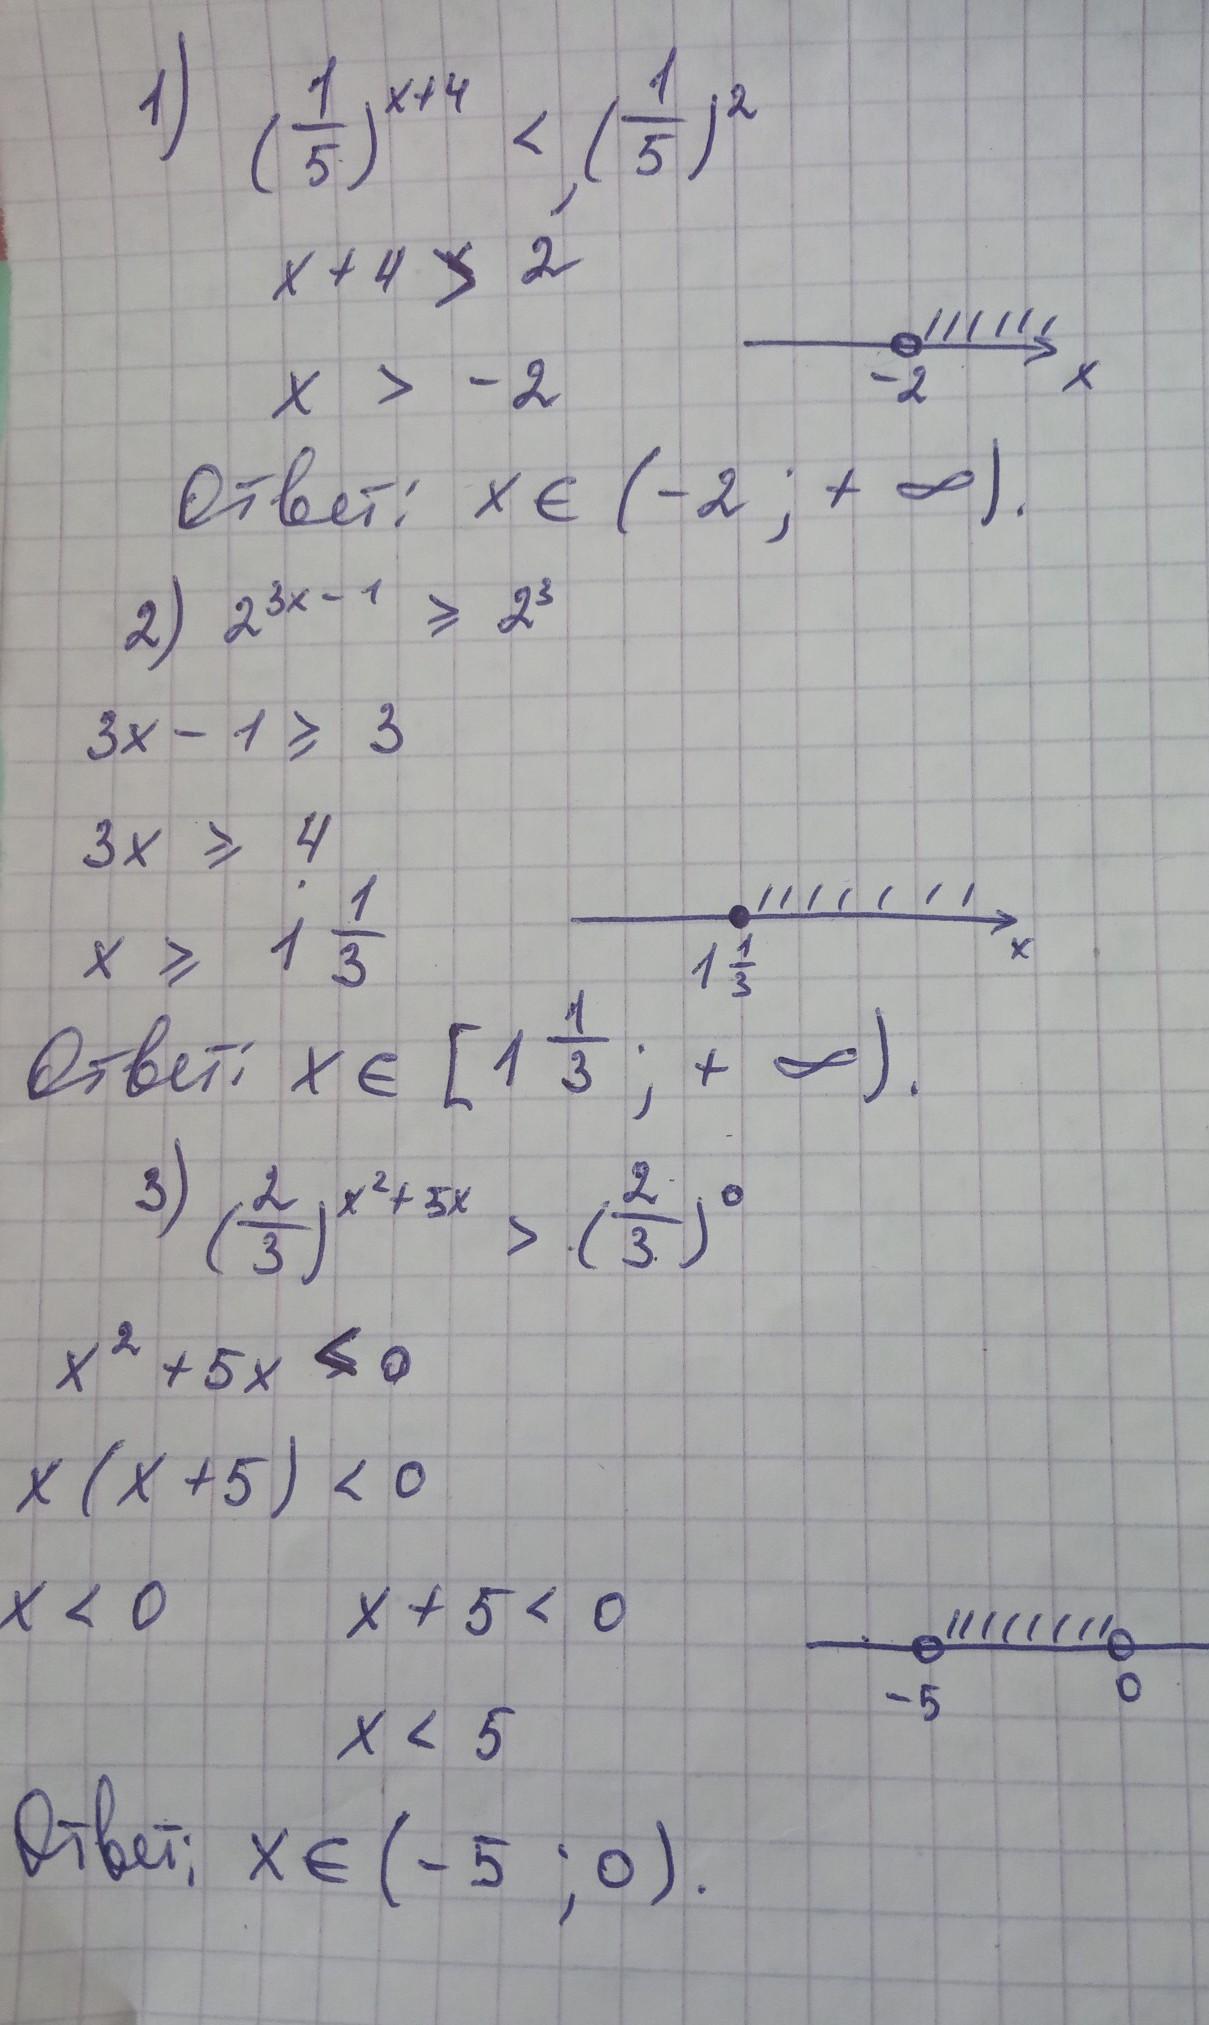 1) (1/5)^(x+4) < (1/5)^2
x+4 > 2
x > -2
-2 x
Ответ: x ∈ (-2; +∞).
2) 2^(3x-1) ⩾ 2^3
3x-1 ⩾ 3
3x ⩾ 4
x ⩾ 1 1/3
1 1/3 x
Ответ: x ∈ [1 1/3; +∞).
3) (2/3)^(x²+5x) > (2/3)^0
x²+5x < 0
x(x+5) < 0
x < 0 x+5 < 0
-5 0
x < 5
Ответ: x ∈ (-5; 0).